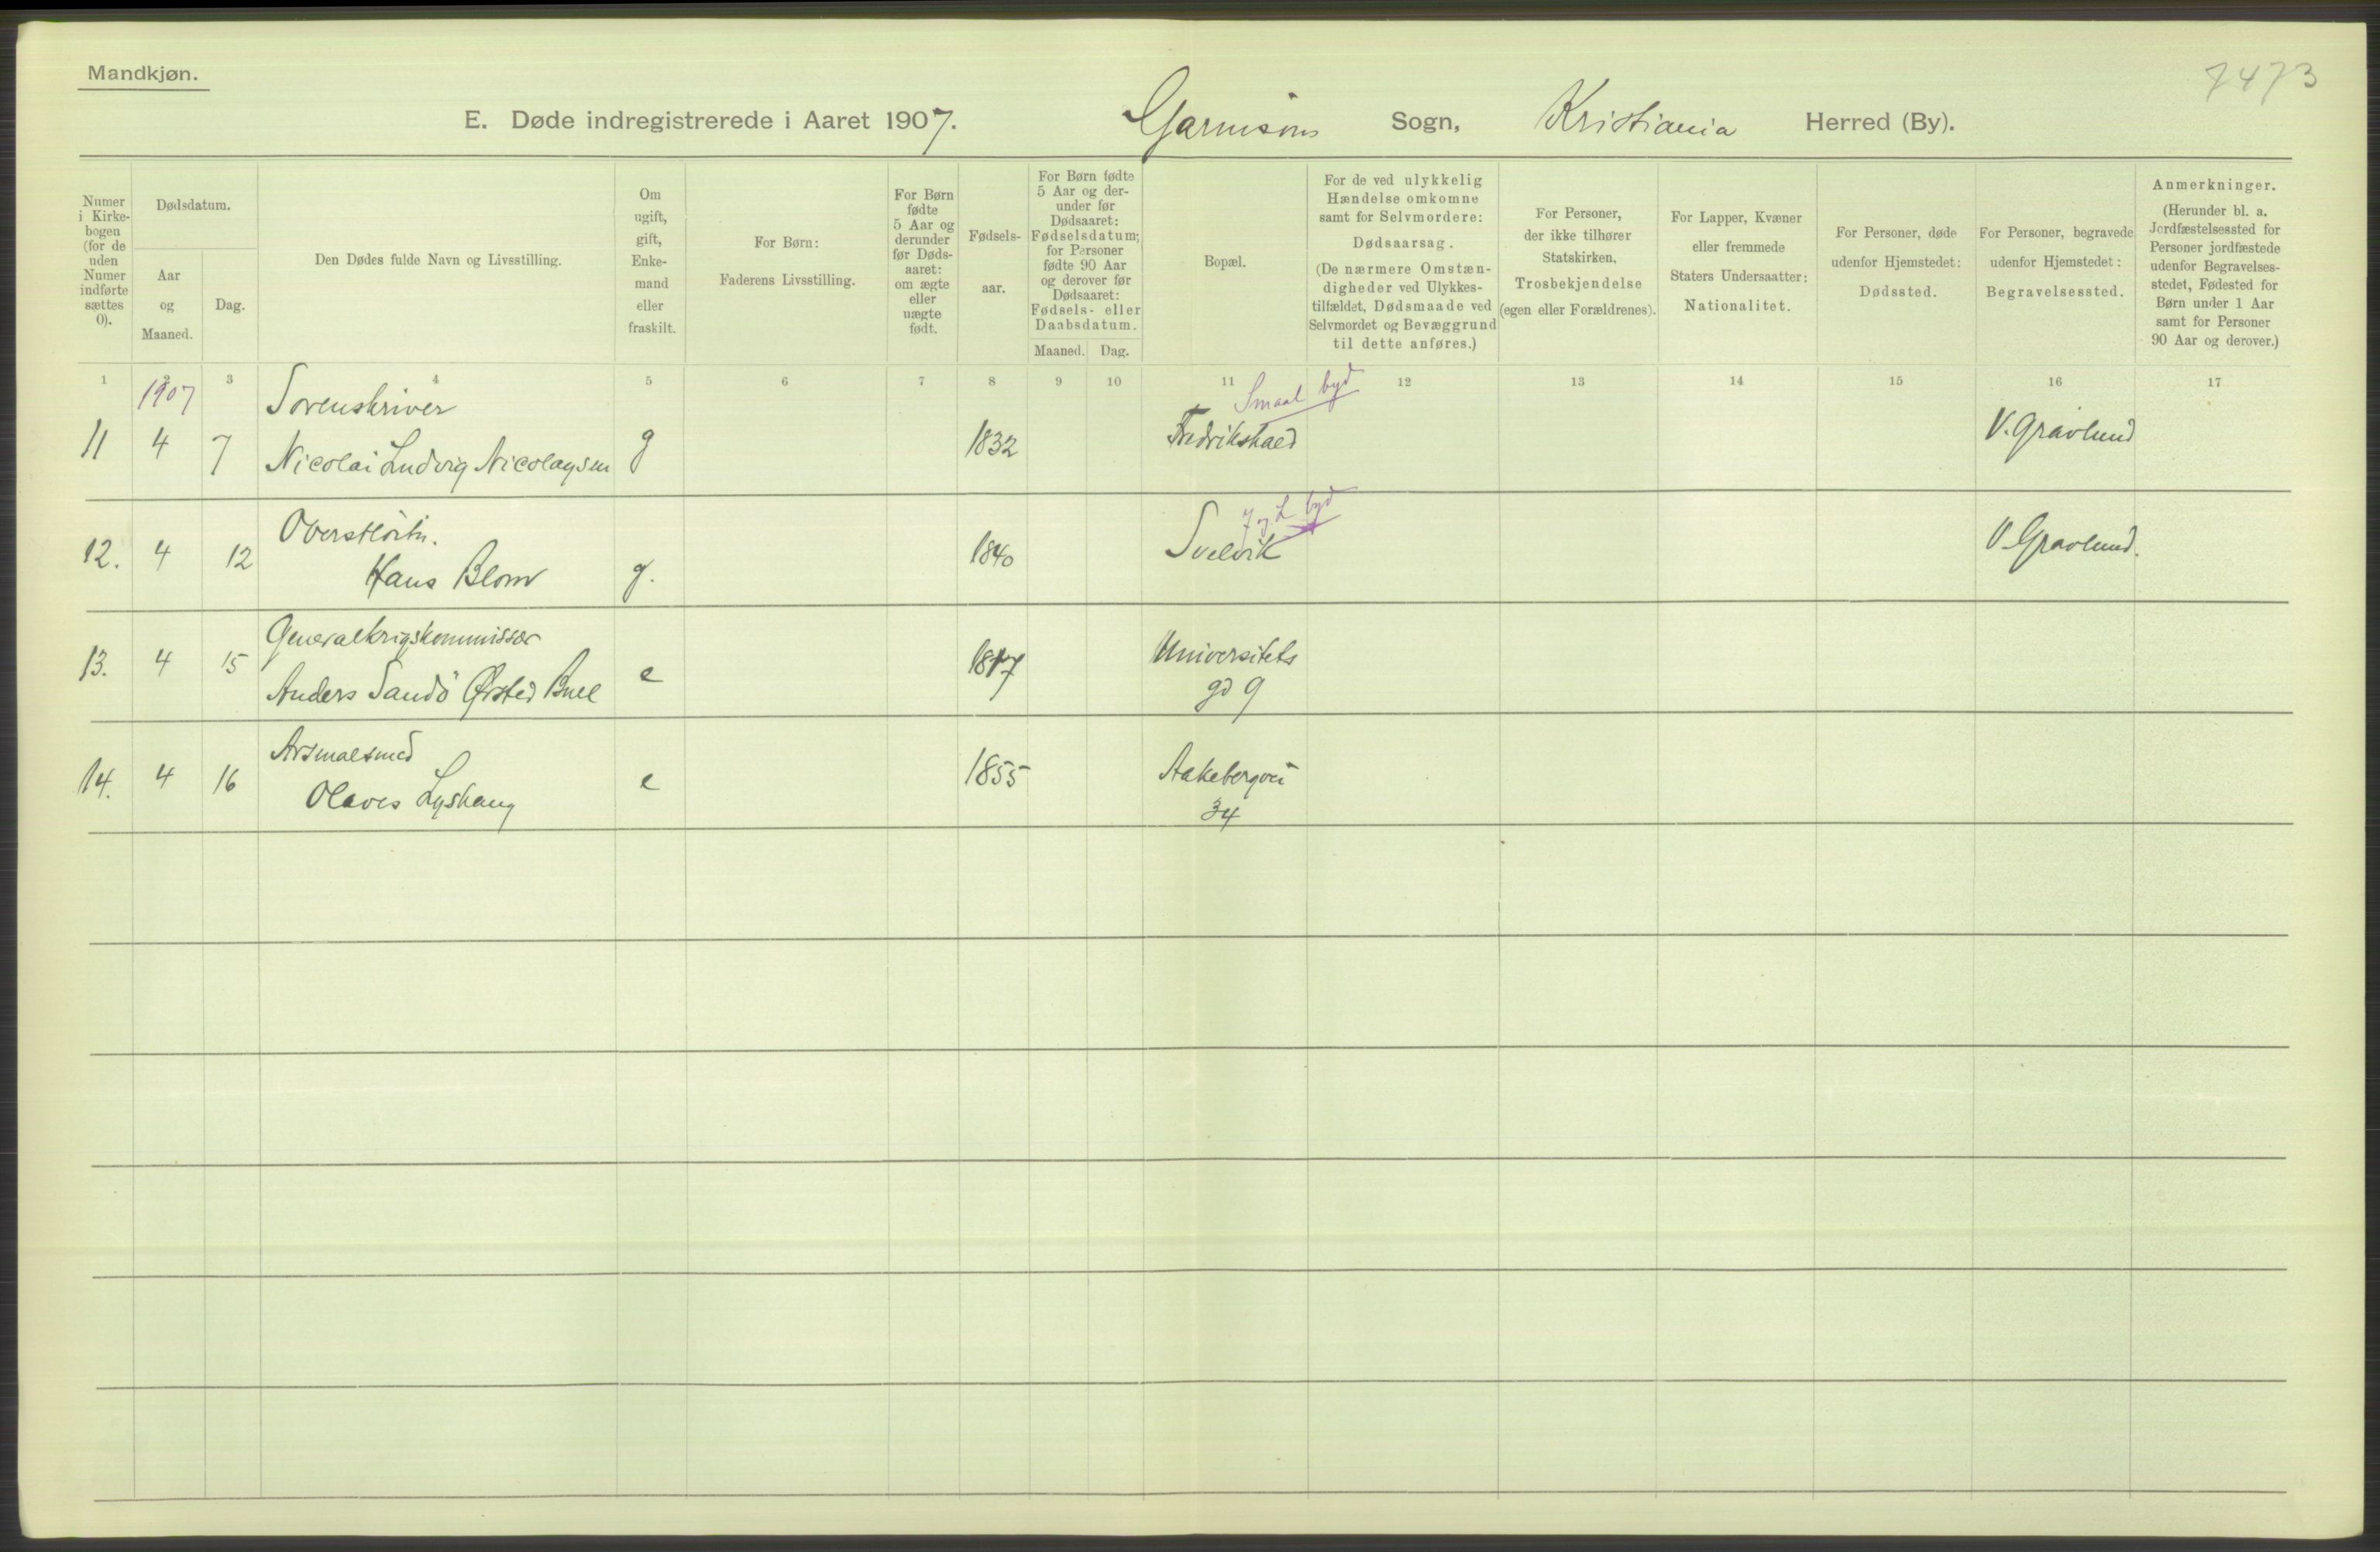 Mandkjøn.
7473
E. Døde indregistrerede i Aaret 1907. Garnisons Sogn, Kristiania Herred (By).
Numer i Kirkebogen (for de uden Numer indførte sættes 0).
Dødsdatum.
Aar og Maaned.
Dag.
Den Dødes fulde Navn og Livsstilling.
Om ugift, gift, Enkemand eller fraskilt.
For Børn:
Faderens Livsstilling.
For Børn fødte 5 Aar og derunder før Dødsaaret: om ægte eller uægte født.
Fødselsaar.
For Børn fødte 5 Aar og derunder før Dødsaaret: Fødselsdatum; for Personer fødte 90 Aar og derover før Dødsaaret: Fødsels- eller Daabsdatum.
Maaned. Dag.
Bopæl.
For de ved ulykkelig Hændelse omkomne samt for Selvmordere:
Dødsaarsag.
(De nærmere Omstændigheder ved Ulykkestilfældet, Dødsmaade ved Selvmordet og Bevæggrund til dette anføres.)
For Personer, der ikke tilhører Statskirken,
Trosbekjendelse
(egen eller Forældrenes).
For Lapper, Kvæner eller fremmede Staters Undersaatter:
Nationalitet.
For Personer, døde udenfor Hjemstedet:
Dødssted.
For Personer, begravede udenfor Hjemstedet:
Begravelsessted.
Anmerkninger.
(Herunder bl. a. Jordfæstelsessted for Personer jordfæstede udenfor Begravelsesstedet, Fødested for Børn under 1 Aar samt for Personer 90 Aar og derover.)
1 2 3 4 5 6 7 8 9 10 11 12 13 14 15 16 17
1907 Sorenskriver Smaal byd
11 4 7 Nicolai Ludvig Nicolaysen g 1832 Fredrikshald V. Gravlund
Oberstløitn. J og L byd
12. 4 12 Hans Blom g. 1840 Svelvik V. Gravlund.
Generalkrigskommissær Universitets
13. 4 15 Anders Sandö Ørsted Bull e 1817 gd 9
Arsenalsmed Aakebergvei
14. 4 16 Olaves Lyshaug e 1855 34